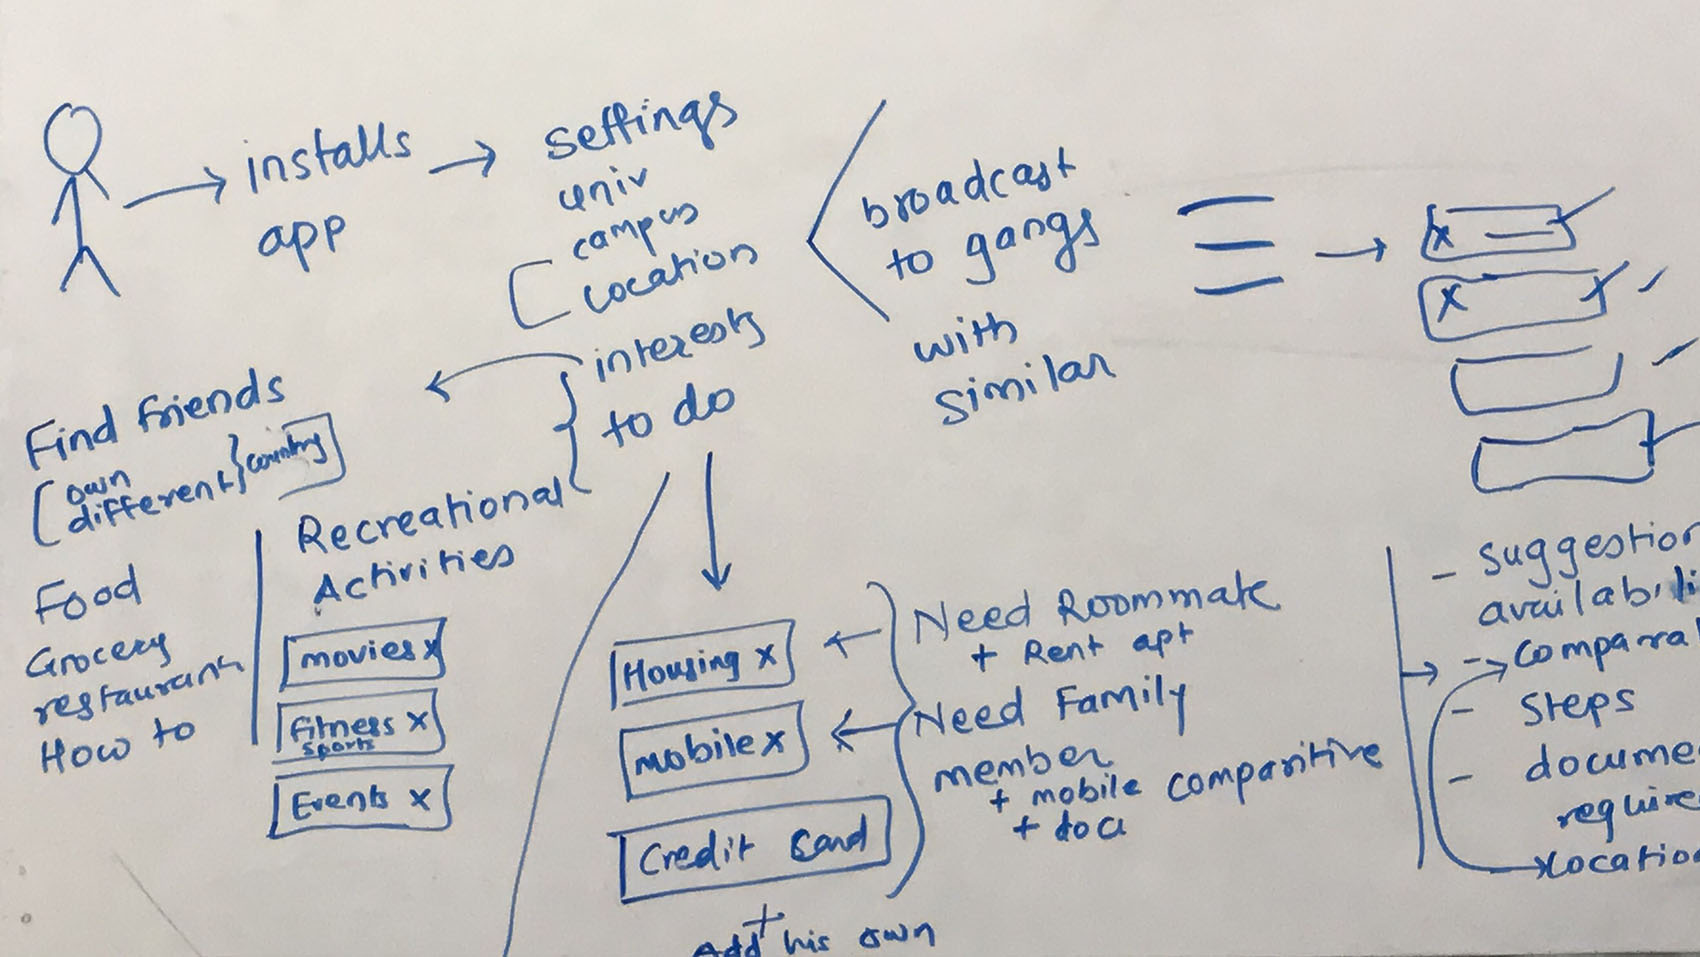 installs
app
settings
univ
campus
Location
interests
to do
broadcast
to gangs
with
similar
x
x
Find friends
own
different
country
Food
Grocery
restaurant
How to
Recreational
Activities
movies x
fitness x
sports
Events x
Housing x
mobile x
Credit Card
+
Add his own
Need Roommate
+ Rent apt
Need Family
member
+ mobile comparitive
+ doc
- suggestion
availabili
- compara
- Steps
- docume
require
Location